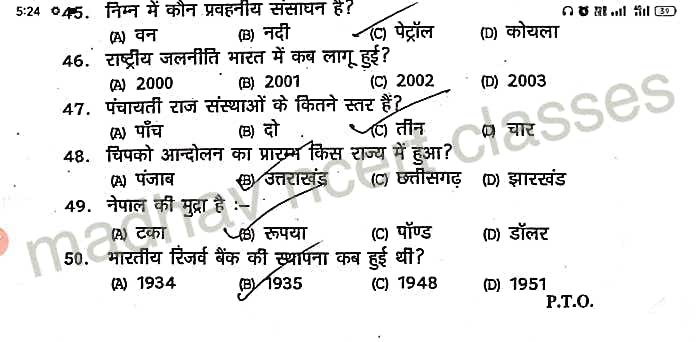 5:24 45. निम्न में कौन प्रवहनीय संसाधन है? 39
(A) वन (B) नदी (C) पेट्रॉल (D) कोयला
46. राष्ट्रीय जलनीति भारत में कब लागू हुई?
(A) 2000 (B) 2001 (C) 2002 (D) 2003
47. पंचायती राज संस्थाओं के कितने स्तर हैं?
(A) पाँच (B) दो (C) तीन (D) चार
48. चिपको आन्दोलन का प्रारम्भ किस राज्य में हुआ?
(A) पंजाब (B) उत्तराखंड (C) छत्तीसगढ़ (D) झारखंड
49. नेपाल की मुद्रा है :–
(A) टका (B) रूपया (C) पॉण्ड (D) डॉलर
50. भारतीय रिजर्व बैंक की स्थापना कब हुई थी?
(A) 1934 (B) 1935 (C) 1948 (D) 1951
P.T.O.
madhav ncert classes